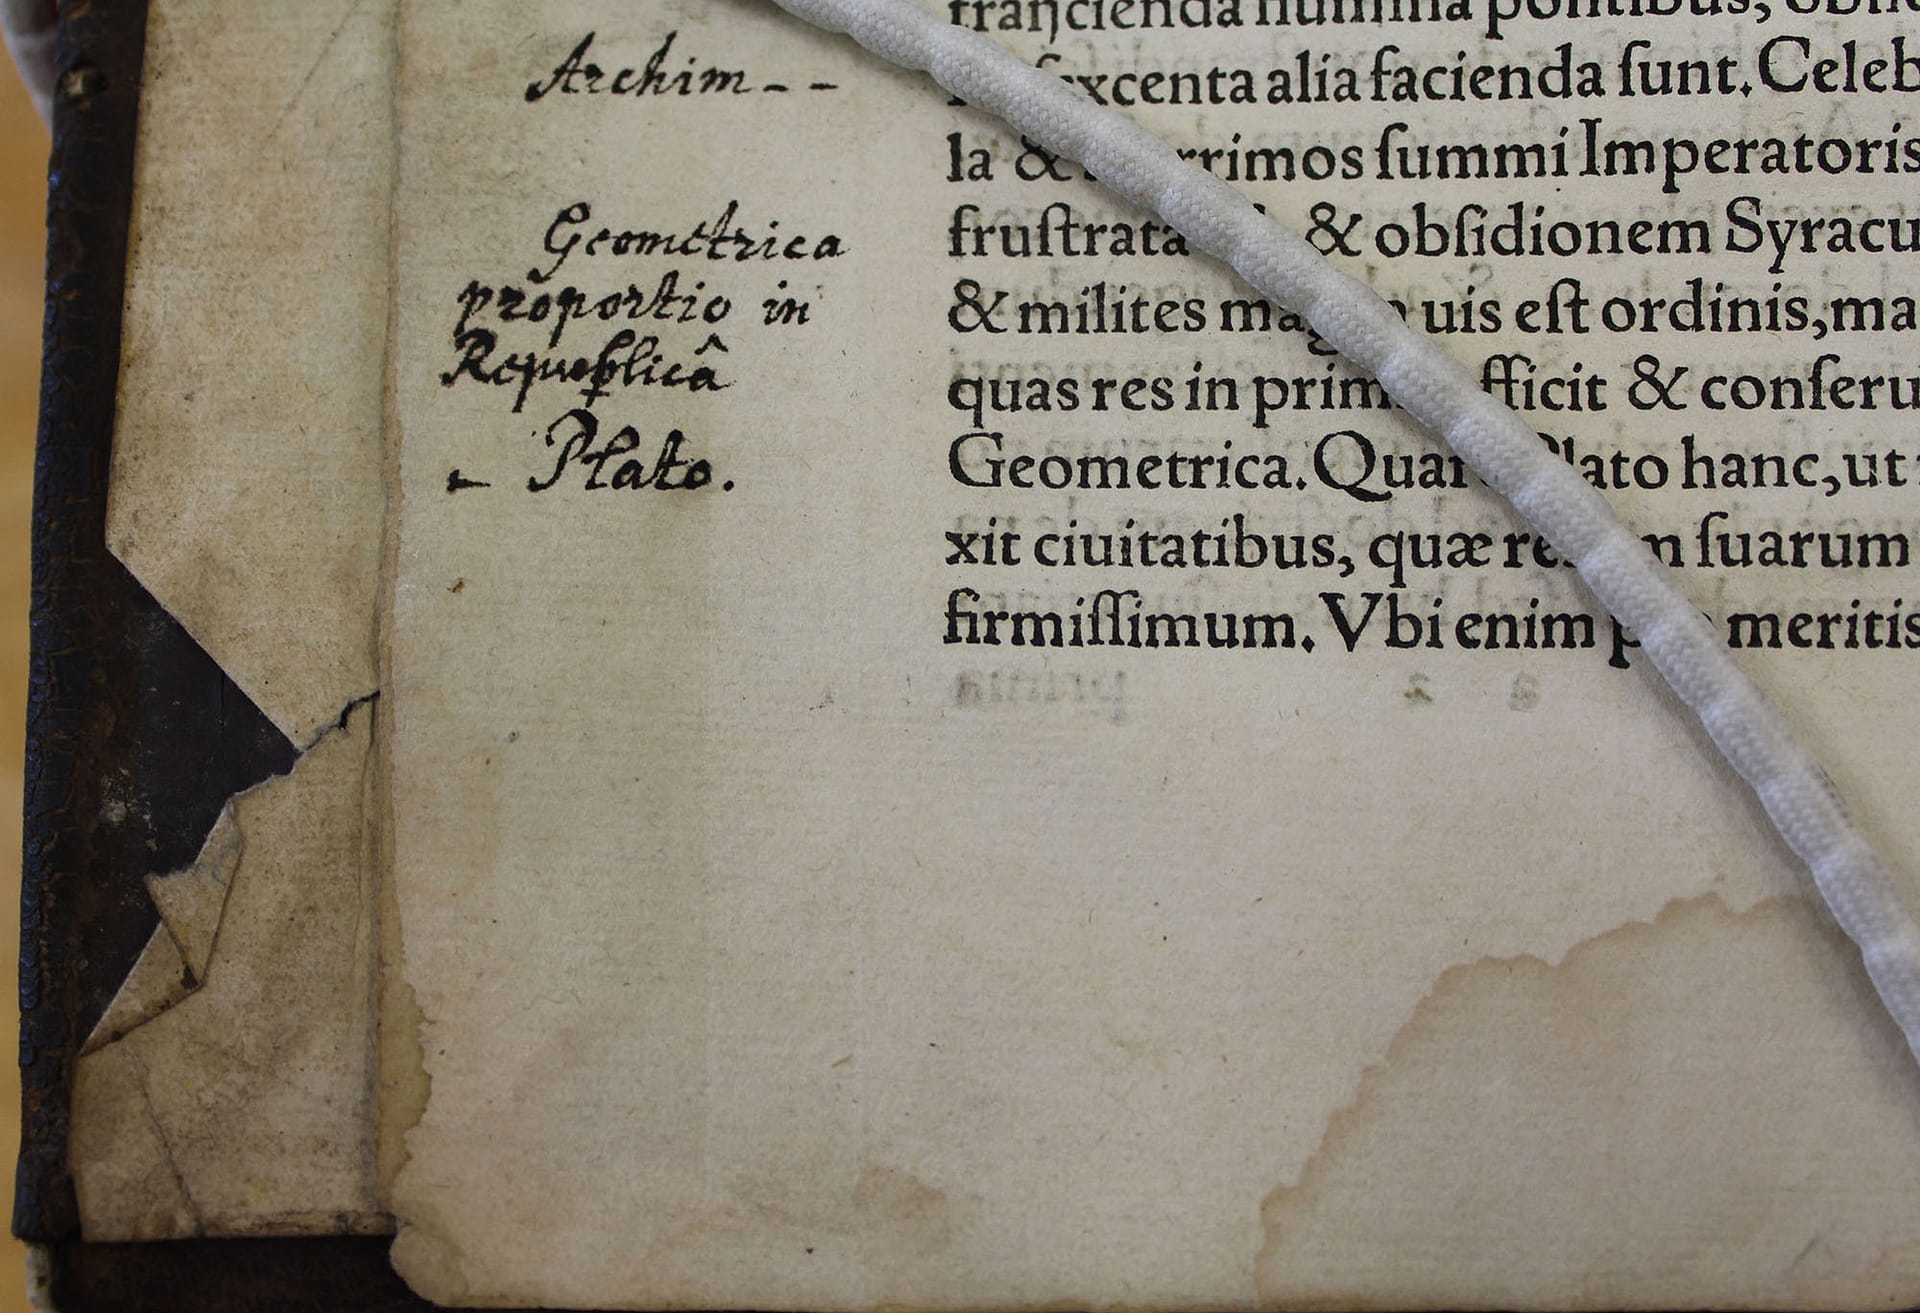 Archim--
Geometrica
proportio in
Republicâ
- Plato.
flumina pontibus,
alia facienda ſunt. Celeb
la & rrimos ſummi Imperatoris
fruſtrata & obſidionem Syracu
& milites uis eſt ordinis, ma
quas res in prim fficit & conſeru
Geometrica. Quar lato hanc, ut
xit ciuitatibus, quæ re m ſuarum
firmiſſimum. Vbi enim p meritis